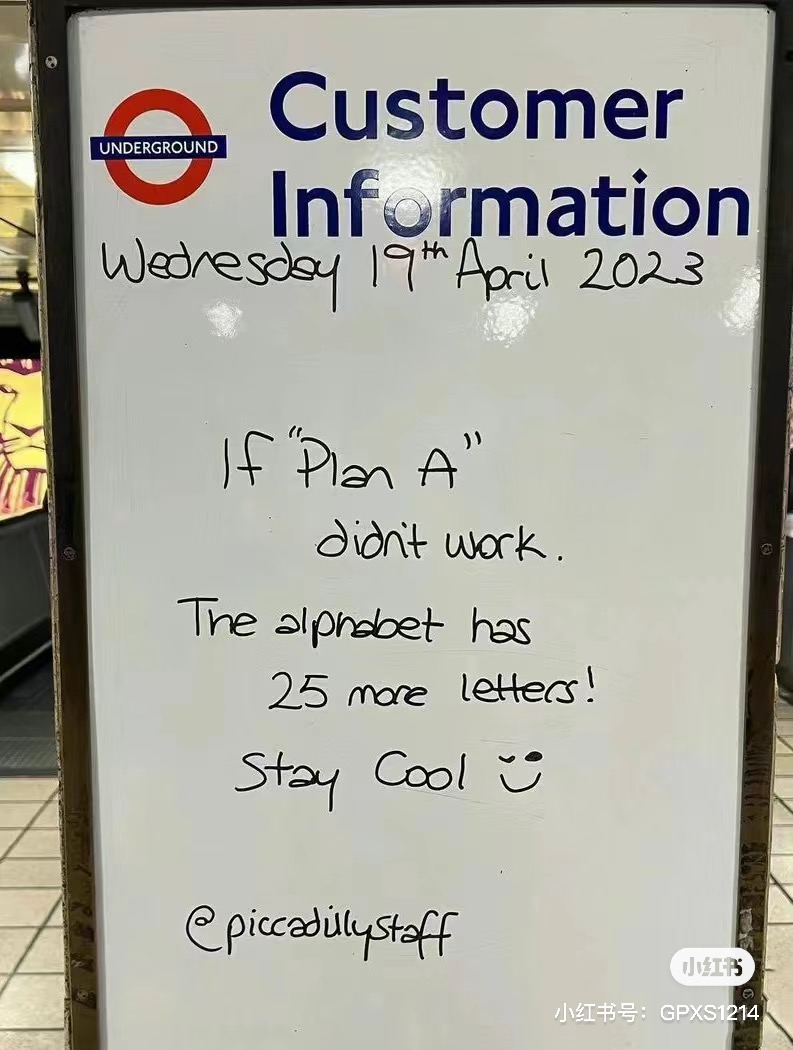 UNDERGROUND
Customer
Information
Wednesday 19th April 2023
If "Plan A"
didn't work.
The alphabet has
25 more letters!
Stay Cool
@piccadillystaff
小红书
小红书号：GPXS1214